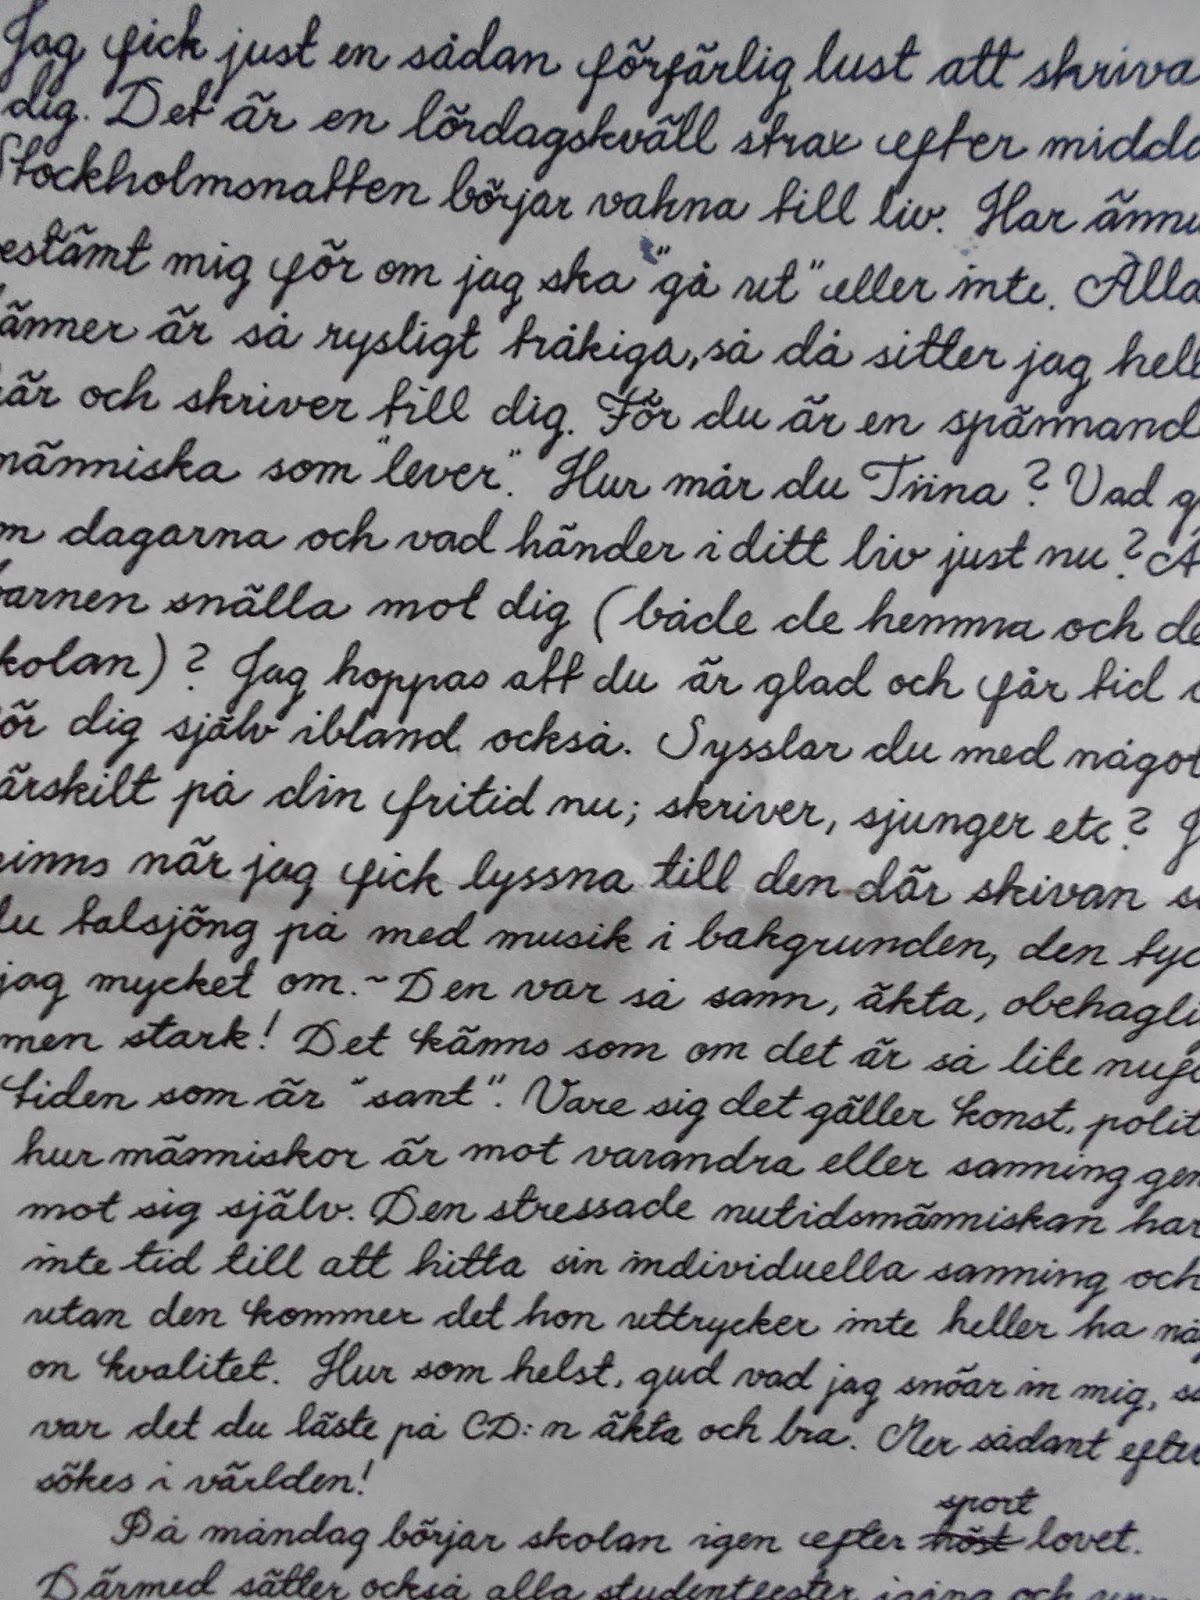 Jag fick just en sådan förfärlig lust att skriva
dig. Det är en lördagskväll strax efter midda
Stockholmsnatten börjar vakna till liv. Har ännu
estämt mig för om jag ska "gå ut" eller inte. Alla
änner är så rysligt tråkiga, så då sitter jag hell
är och skriver till dig. För du är en spännand
människa som "lever". Hur mår du Tiina? Vad g
m dagarna och vad händer i ditt liv just nu? Ä
barnen snälla mot dig (både de hemma och de
kolan)? Jag hoppas att du är glad och får tid
ör dig själv ibland också. Sysslar du med något
ärskilt på din fritid nu; skriver, sjunger etc? J
inns när jag fick lyssna till den där skivan s
du talsjöng på med musik i bakgrunden, den tyc
jag mycket om.~ Den var så sann, äkta, obehagli
men stark! Det känns som om det är så lite nuf
tiden som är "sant". Vare sig det gäller konst, polit
hur människor är mot varandra eller sanning gen
mot sig själv. Den stressade nutidsmänniskan har
inte tid till att hitta sin individuella sanning och
utan den kommer det hon uttrycker inte heller ha nå
on kvalitet. Hur som helst, gud vad jag snöar in mig, så
var det du läste på CD:n äkta och bra. Mer sådant efter
sökes i världen!
sport
På måndag börjar skolan igen efter höst lovet.
Därmed sätter också alla studentfester igång och